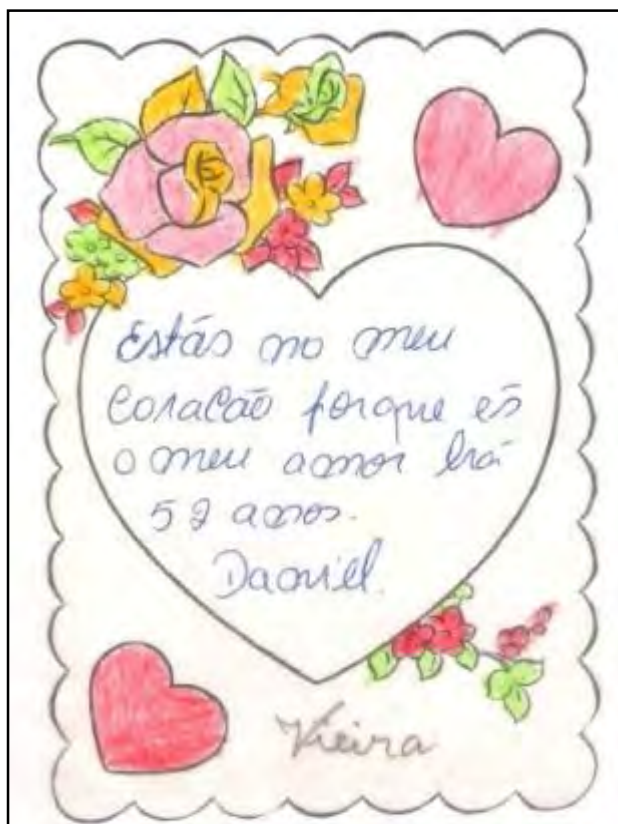 Estás no meu
coracão porque és
o meu amor há
52 anos.
Daniel.
Vieira